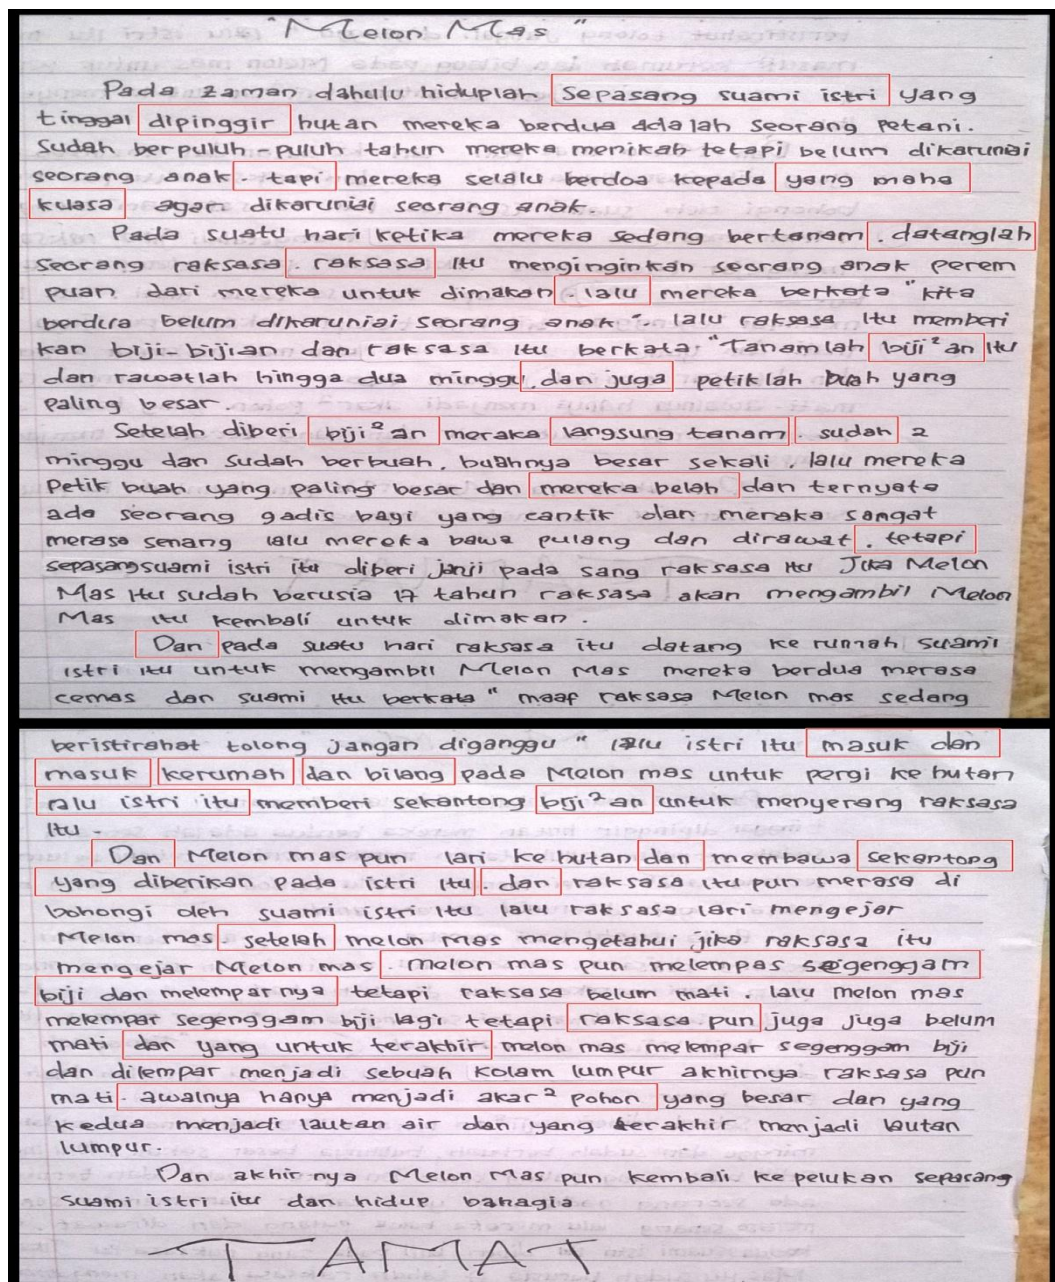 "Melon Mas"
Pada zaman dahulu hiduplah Sepasang suami istri yang
tinggal dipinggir hutan mereka berdua adalah seorang petani.
Sudah berpuluh-puluh tahun mereka menikah tetapi belum dikaruniai
seorang anak. tapi mereka selalu berdoa kepada yang maha
kuasa agar dikaruniai seorang anak
Pada suatu hari ketika mereka sedang bertanam. datanglah
seorang raksasa. raksasa itu menginginkan seorang anak perem
puan dari mereka untuk dimakan. lalu mereka berkata "kita
berdua belum dikaruniai seorang anak". lalu raksasa itu memberi
kan biji-bijian dan raksasa itu berkata "Tanamlah biji²an itu
dan rawatlah hingga dua minggu, dan juga petiklah buah yang
paling besar.
Setelah diberi biji²an meraka langsung tanam. sudah 2
minggu dan sudah berbuah, buahnya besar sekali, lalu mereka
Petik buah yang paling besar dan mereka belah dan ternyata
ada seorang gadis bayi yang cantik dan meraka sangat
merasa senang lalu mereka bawa pulang dan dirawat. tetapi
sepasang suami istri itu diberi janji pada sang raksasa itu Jika Melon
Mas itu sudah berusia 17 tahun raksasa akan mengambil Melon
Mas itu kembali untuk dimakan.
Dan pada suatu hari raksasa itu datang ke rumah suami
istri itu untuk mengambil Melon Mas mereka berdua merasa
cemas dan suami itu berkata "maaf raksasa Melon mas sedang
beristirahat tolong jangan diganggu" lalu istri itu masuk dan
masuk kerumah dan bilang pada Melon mas untuk pergi ke hutan
lalu istri itu memberi sekantong biji²an untuk menyerang raksasa
itu.
Dan Melon mas pun lari ke hutan dan membawa sekantong
yang diberikan pada istri itu. dan raksasa itu pun merasa di
bohongi oleh suami istri itu lalu raksasa lari mengejar
Melon mas. setelah melon mas mengetahui jika raksasa itu
mengejar Melon mas. melon mas pun melempas segenggam
biji dan melemparnya tetapi raksasa belum mati. lalu melon mas
melempar segenggam biji lagi tetapi raksasa pun juga juga belum
mati dan yang untuk terakhir melon mas melempar segenggam biji
dan dilempar menjadi sebuah kolam lumpur akhirnya raksasa pun
mati. awalnya hanya menjadi akar² pohon yang besar dan yang
kedua menjadi lautan air dan yang terakhir menjadi lautan
lumpur.
Dan akhirnya Melon Mas pun kembali ke pelukan sepasang
suami istri itu dan hidup bahagia
TAMAT